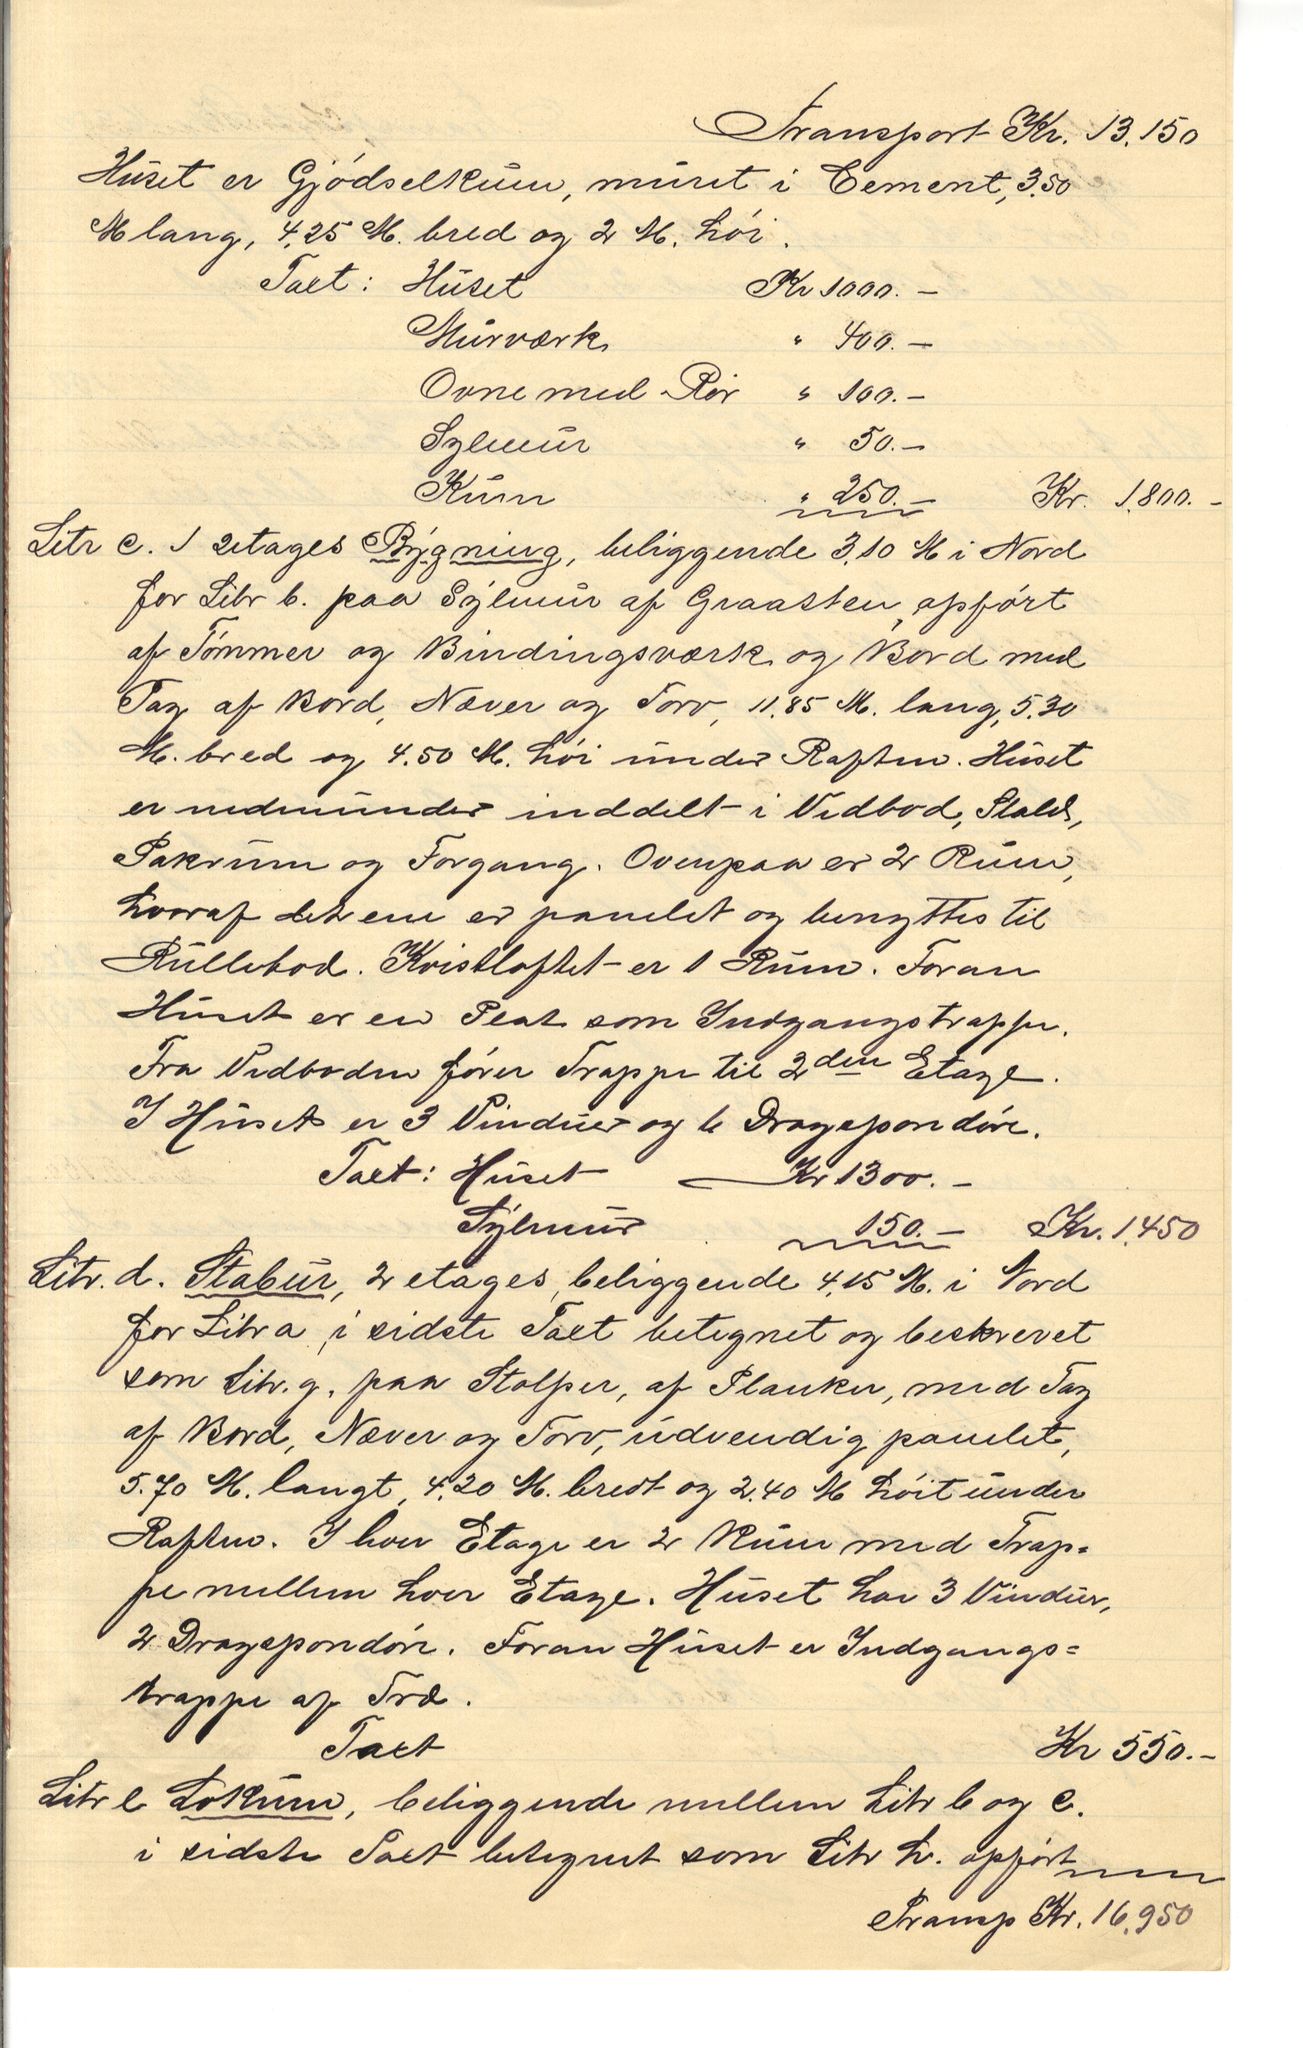 Transport Kr. 13.150
Huset er Gjødselkum, muret i Cement, 3.50
M lang, 4,25 M. bred og 2 M. høi.
Taxt: Huset Kr 1000.-
Murværk " 400.-
Ovne med Rør " 100.-
Sylmur " 50.-
Kum " 250.- Kr. 1.800.-
Litr c. 1 2etages Bygning, beliggende 3,10 M i Nord
for Litr b. paa Sylmur af Graasten, opført
af Tømmer og Bindingsværk og Bord med
Tag af Bord, Næver og Torv, 11.85 M. lang, 5.30
M. bred og 4.50 M. høi under Raften. Huset
er nedenunder inddelt i Vedbod, Stald,
Pakrum og Forgang. Ovenpaa er 2 Rum,
hvoraf det ene er panelet og benyttes til
Rullebod. Kvistloftet er 1 Rum. Foran
Huset er en Plat som Indgangstrappe.
Fra Vedboden fører Trappe til 2den Etage.
I Huset er 3 Vinduer og 6 Dragspondøre.
Taxt: Huset Kr 1300.-
Sylmur 150.- Kr. 1.450
Litr. d. Stabur, 2 etages, beliggende 4,15 M. i Nord
for Litr a, i sidste Taxt betegnet og beskrevet
som Litr. g. paa Stolper, af Planker, med Tag
af Bord, Næver og Torv, udvendig panelet,
5.70 M. langt, 4,20 M. bredt og 2.40 M høit under
Raften. I hver Etage er 2 Rum med Trap=
pe mellem hver Etage. Huset har 3 Vinduer,
2 Dragspondøre. Foran Huset er Indgangs=
trappe af Træ.
Taxt Kr 550.-
Litr e Lokum, beliggende mellem Litr b og c.
i sidste Taxt betegnet som Litr h. opført
Transp Kr. 16.950